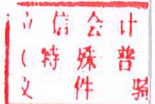 立信会计
(特殊普
文件骑